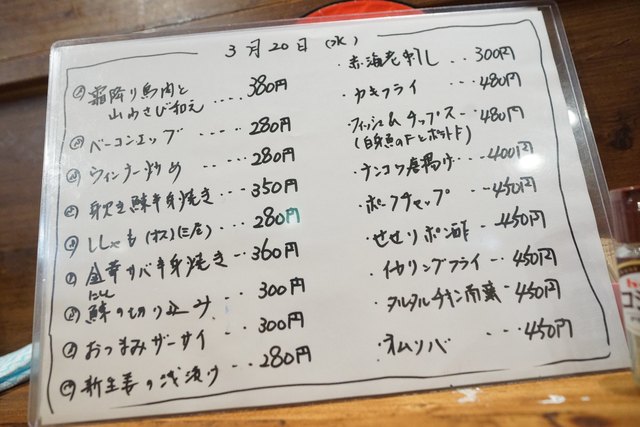 3月20日 (水)
霜降り馬肉と
山わさび和え ‥‥ 380円
ベーコンエッグ ‥‥ 280円
ウィンナー炒め ‥‥ 280円
身欠き鰊半身焼き ‥‥ 350円
ししゃも(オス)(三尾) ‥‥ 280円
金華サバ半身焼き ‥‥ 360円
にしん
鰊の切り込み ‥‥ 300円
おつまみザーサイ ‥‥ 300円
新生姜の浅漬け ‥‥ 280円
・赤海老刺し ‥‥ 300円
・カキフライ ‥‥ 480円
・フィッシュ&チップス ‥‥ 480円
(白身魚のFとポテトF)
・ナンコツ唐揚げ ‥‥ 400円
・ポークチャップ ‥‥ 450円
・せせりポン酢 ‥‥ 450円
・イカリングフライ ‥‥ 450円
・タルタルチキン南蛮 ‥‥ 450円
・オムソバ ‥‥ 450円